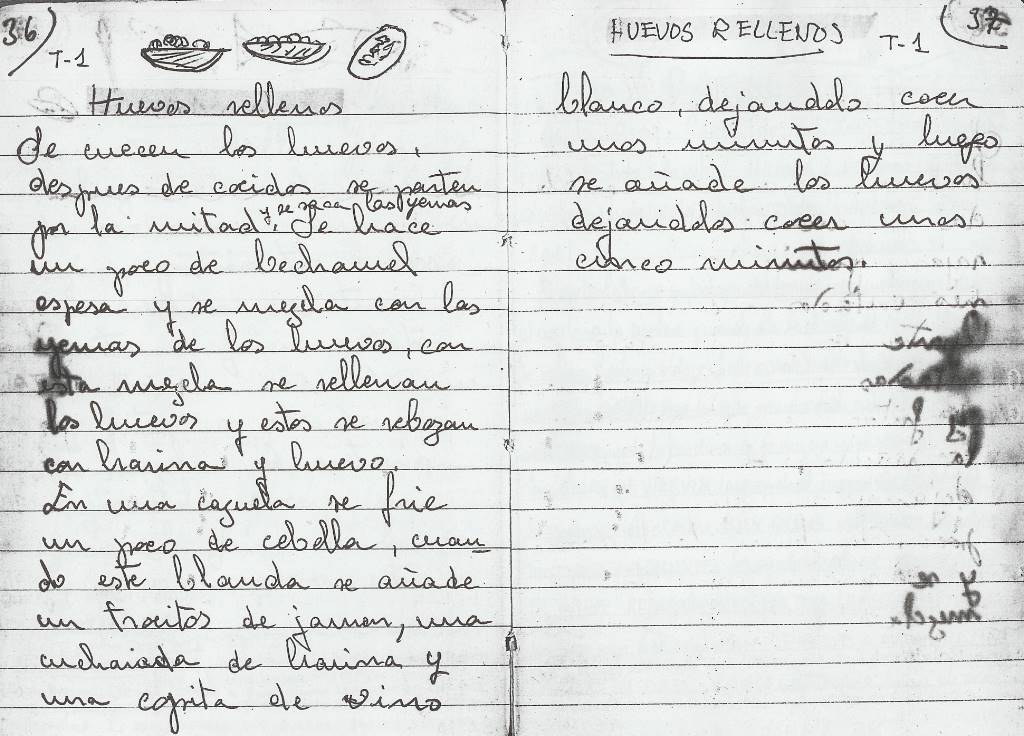 36
T-1
Huevos rellenos
Se cuecen los huevos,
despues de cocidos se parten
y se saca las yemas
por la mitad. Se hace
un poco de bechamel
espesa y se mezcla con las
yemas de los huevos, con
esta mezcla se rellenan
los huevos y estos se rebozan
con harina y huevo.
En una cazuela se frie
un poco de cebolla, cuan-
do este blanda se añade
un trocitos de jamon, una
cucharada de harina y
una copita de vino
HUEVOS RELLENOS
T-1
37
blanco, dejanddo cocer
unos minutos y luego
se añade los huevos
dejanddos cocer unos
cinco minutos.
y se
mezcla